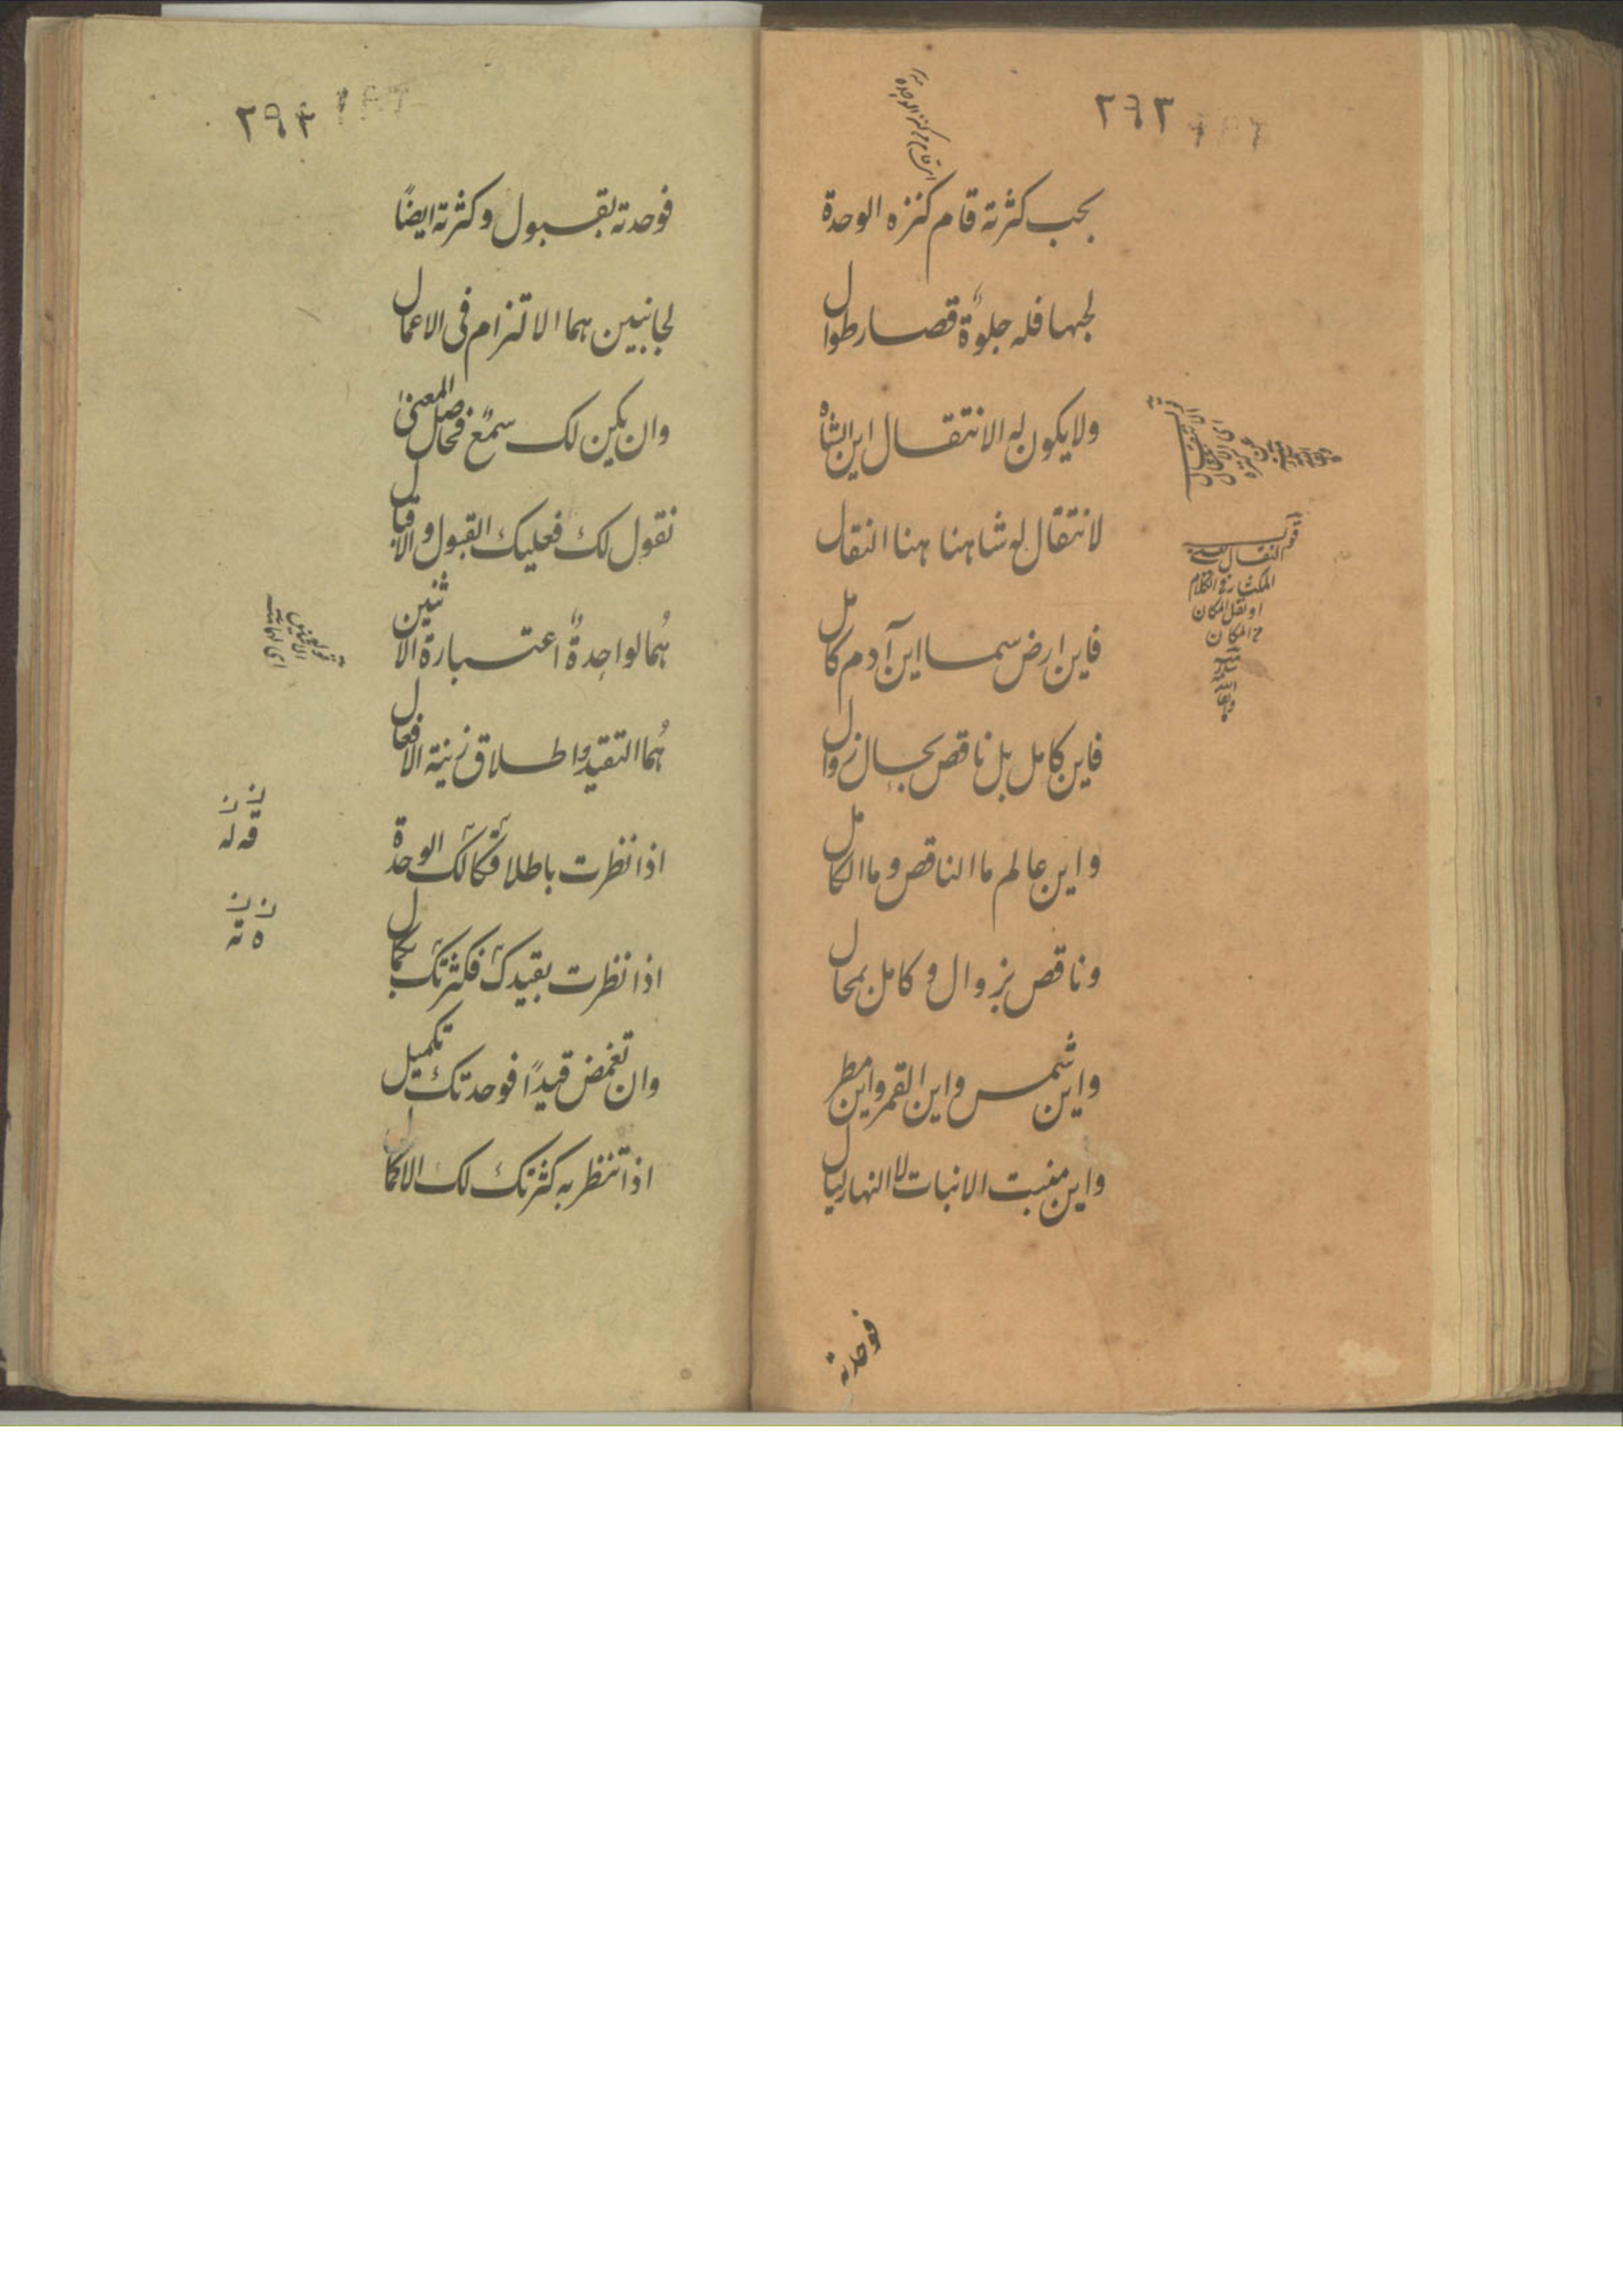 ٢٩٣
بحب كثرته قام كنزه الوحدة
لجبها فله جلوة قصار طوال
ولا يكون له الانتقال اين الشاه
لانتقال له شاهنا هنا النقال
فاين ارض سما اين آدم كامل
فاين كامل بل ناقص بحال زوال
واين عالم ما الناقص وما الكامل
وناقص بزوال و كامل بمحال
واين شمس واين القمر واين مطر
واين منبت الانبات لا النهار ليال
قوم النقال
او نقل المكان
فوحدته
٢٩٤
فوحدته بقبول وكثرته ايضًا
لجانبين هما الالتزام فى الاعمال
وان يكن لك سمع فحاصل المعنى
نقول لك فعليك القبول والاقبال
هُما لواحدة اعتبارة الاثنين
هُما التقيد واطلاق زينة الافعال
اذا نظرت باطلاقكالك الوحدة
اذا نظرت بقيدك فكثرتك بكمال
وان تغمض قيدًا فوحدتك تكميل
اذا تنظر به كثرتك لك الاكمال
ن ن
قه له
ن ن
ه ته